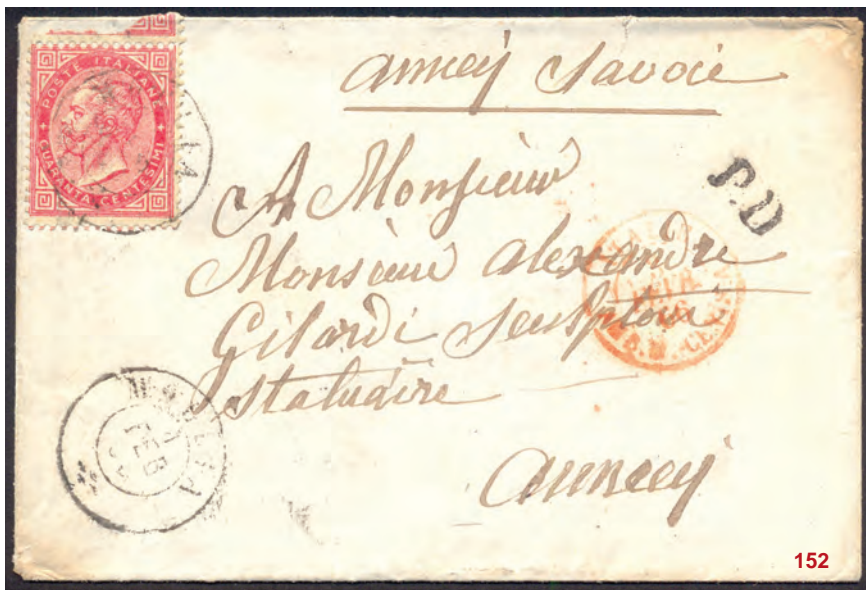 POSTE ITALIANE
QUARANTA CENTESIMI
annecy Savoie
A Monsieur
Monsieur alexandre
Gilardi Sculpteur
Statuaire
annecy
P.D
FEB
152